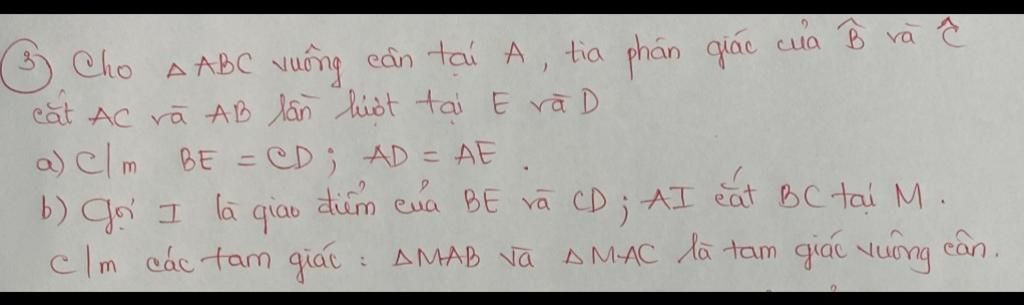 3) Cho △ ABC vuông cân tại A, tia phân giác của B̂ và Ĉ
cắt AC và AB lần lượt tại E và D
a) C/m BE = CD; AD = AE.
b) Gọi I là giao điểm của BE và CD; AI cắt BC tại M.
C/m các tam giác: △MAB và △MAC là tam giác vuông cân.